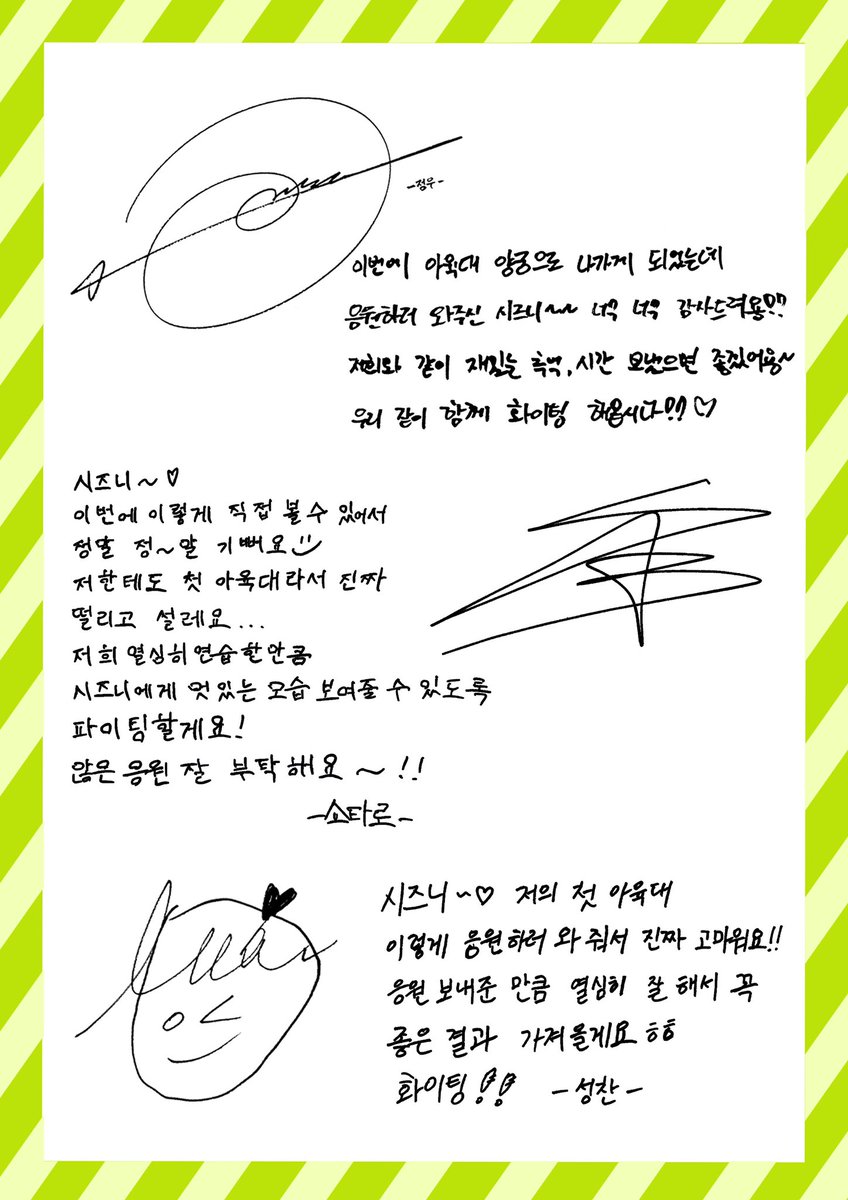 -정우-
이번에 아육대 양궁으로 나가게 되었는데
응원하러 와주신 시즈니~~ 너무 너무 감사드려용!!
저희와 같이 재밌는 추억, 시간 보냈으면 좋겠어용~
우리 같이 함께 화이팅 해봅시다!! ♡
시즈니~♡
이번에 이렇게 직접 볼 수 있어서
정말 정~말 기뻐요
저한테도 첫 아육대라서 진짜
떨리고 설레요...
저희 열심히 연습한만큼
시즈니에게 멋있는 모습 보여줄 수 있도록
파이팅할게요!
많은 응원 잘 부탁해요~!!
-쇼타로-
시즈니~♡ 저의 첫 아육대
이렇게 응원하러 와 줘서 진짜 고마워요!!
응원 보내준 만큼 열심히 잘 해서 꼭
좋은 결과 가져올게요ㅎㅎ
화이팅!! -성찬-